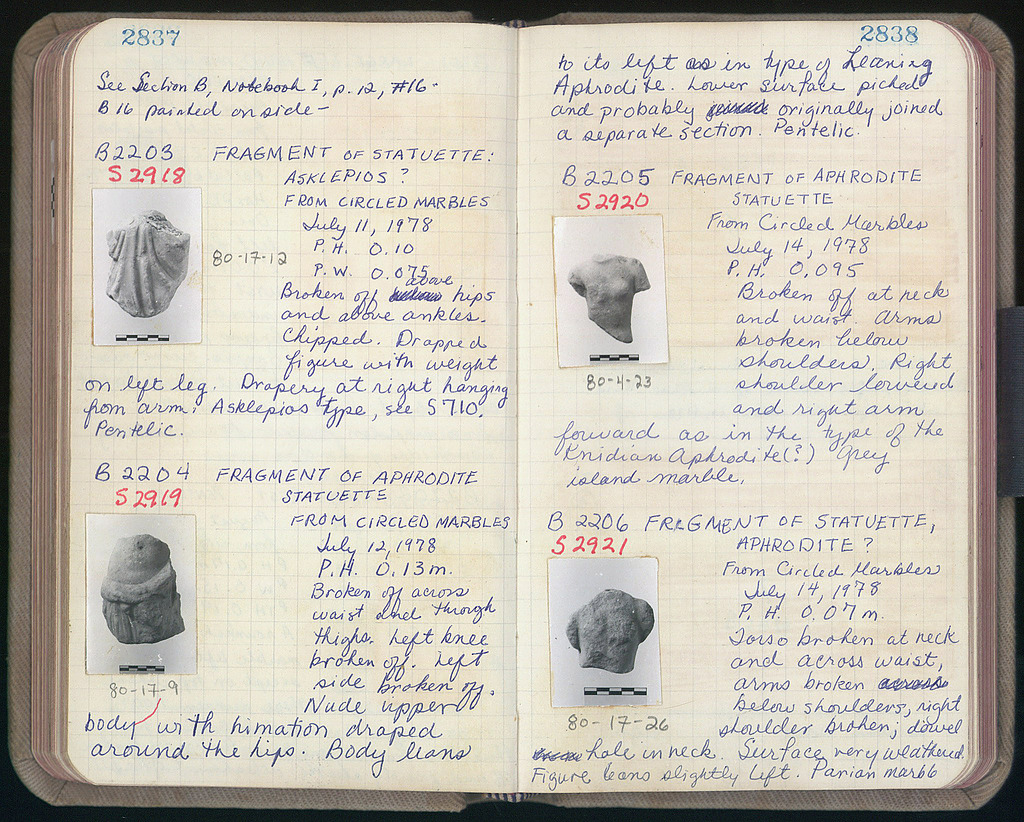 2837
See Section B, Notebook I, p. 12, #16-
B 16 painted on side -
B2203 FRAGMENT OF STATUETTE:
S 2918 ASKLEPIOS ?
FROM CIRCLED MARBLES
July 11, 1978
P. H. 0.10
80-17-12
P. W. 0.075
above
Broken off hips
and above ankles.
Chipped. Drapped
figure with weight
on left leg. Drapery at right hanging
from arm. Asklepios type, see S 710.
Pentelic.
B 2204 FRAGMENT OF APHRODITE
S 2919 STATUETTE
FROM CIRCLED MARBLES
July 12, 1978
P. H. 0.13 m.
Broken off across
waist and through
thighs. Left knee
broken off. Left
side broken off.
80-17-9
Nude upper
body with himation draped
around the hips. Body leans
2838
to its left as in type of Leaning
Aphrodite. Lower surface picked
and probably originally joined
a separate section. Pentelic.
B 2205 FRAGMENT OF APHRODITE
S 2920 STATUETTE
From Circled Marbles
July 14, 1978
P. H. 0.095
Broken off at neck
and waist. Arms
broken below
shoulders. Right
80-4-23
shoulder lowered
and right arm
forward as in the type of the
Knidian Aphrodite (?) Grey
island marble.
B 2206 FRAGMENT OF STATUETTE,
S 2921 APHRODITE ?
From Circled Marbles
July 14, 1978
P. H. 0.07 m.
Torso broken at neck
and across waist,
arms broken
below shoulders, right
80-17-26
shoulder broken; dowel
hole in neck. Surface very weathered.
Figure leans slightly left. Parian marble